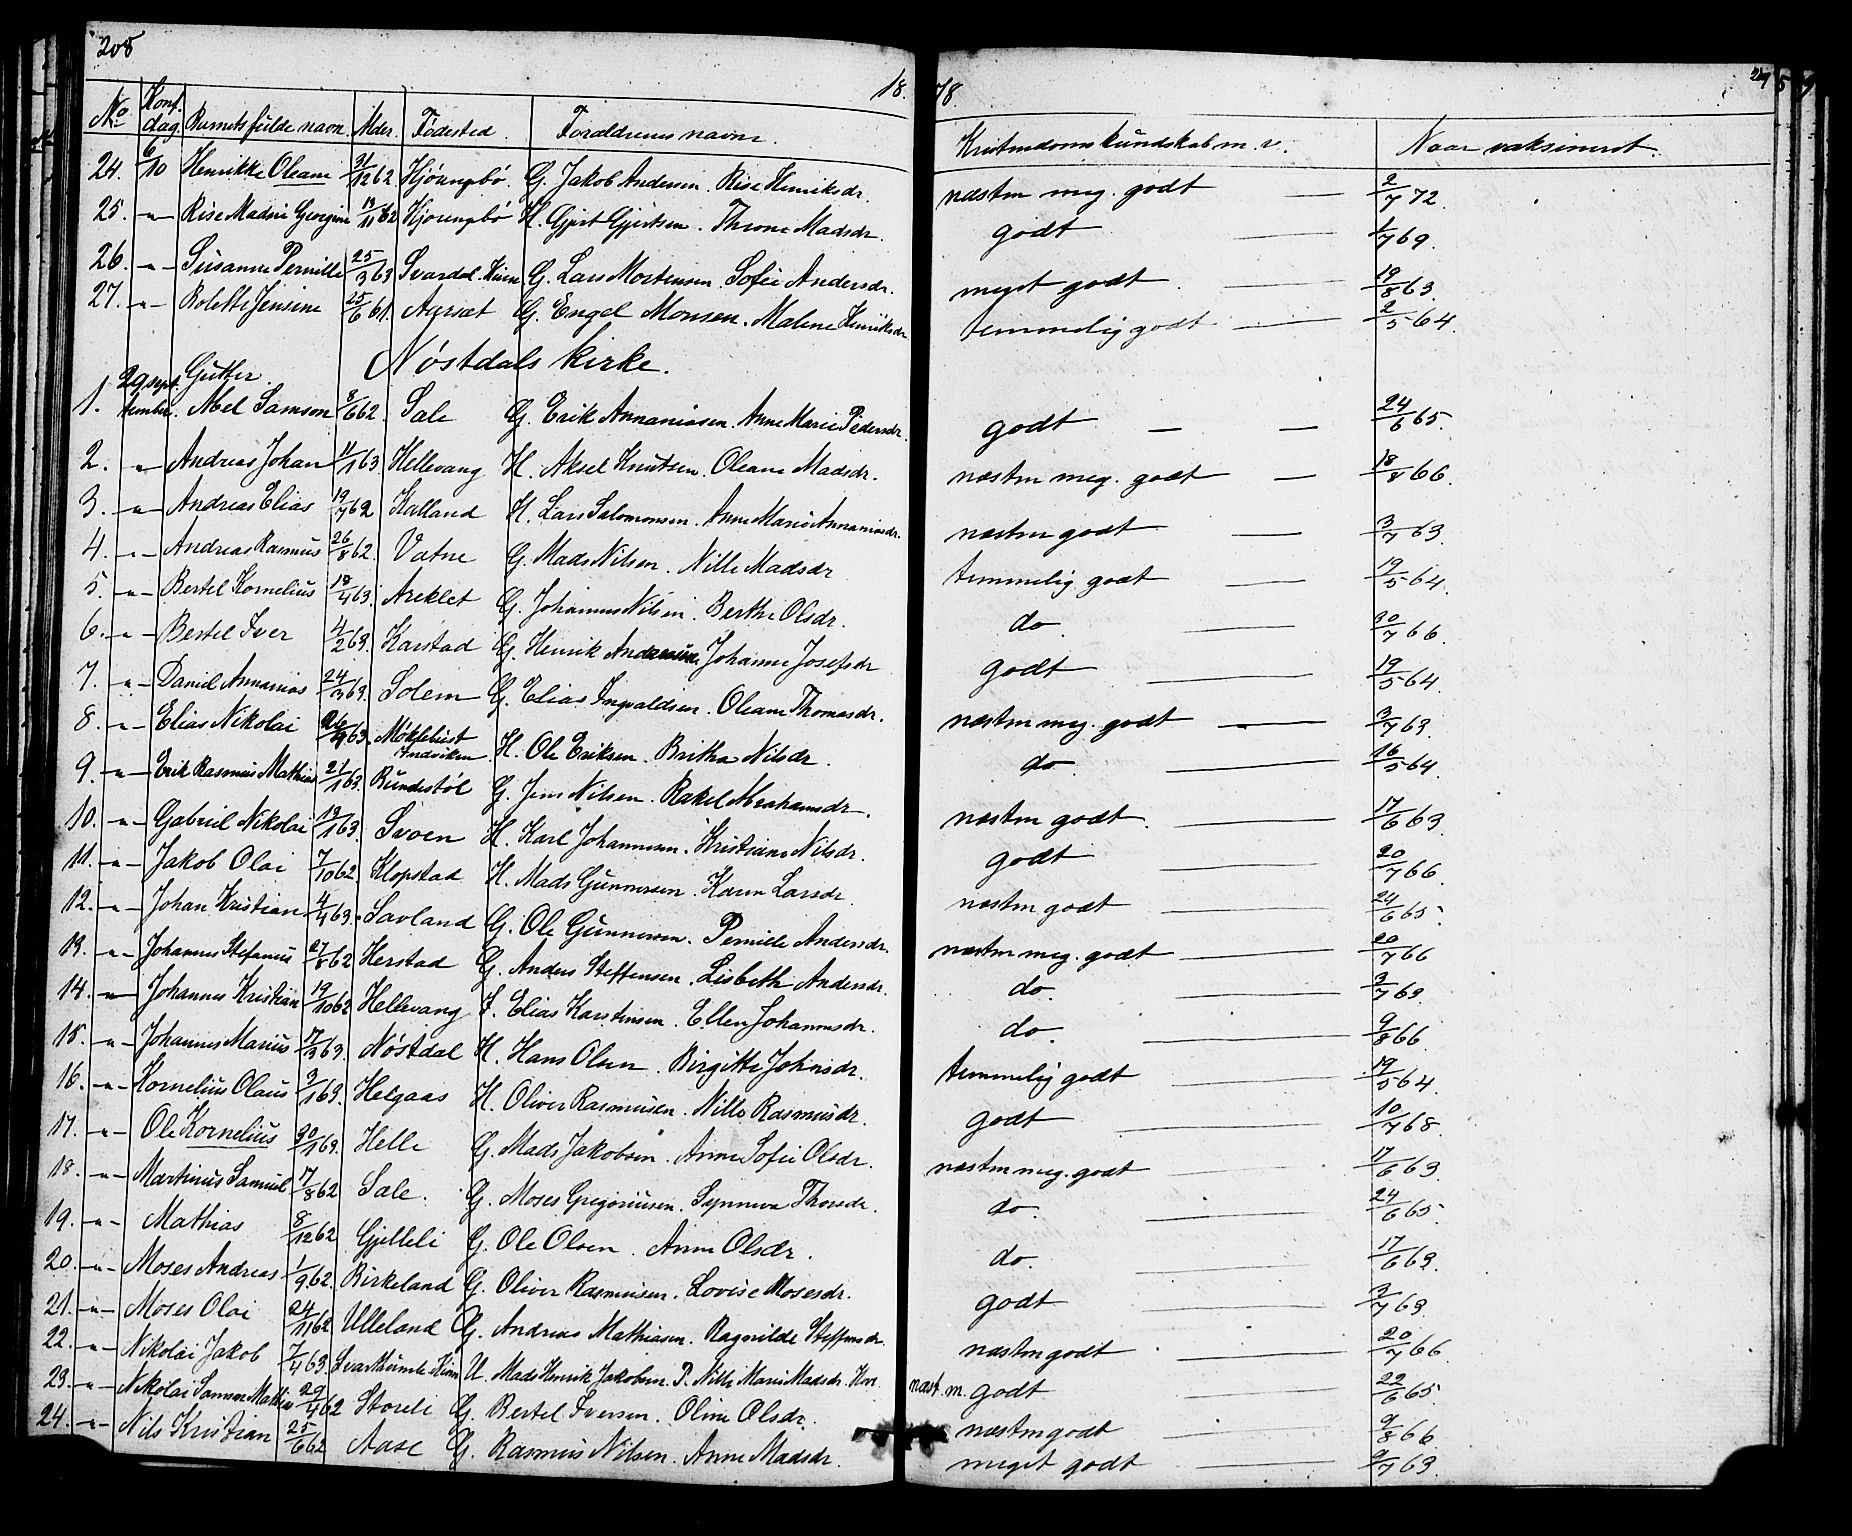 208
18. 78.
No. Konf. dag. Barnets fulde navn. Alder. Fødested. Forældrenes navne. Kristendomskundskab m. v. Naar vaksineret.
24. 6/10 Henrikke Oleane 31/12 62 Hjørungbø. G. Jakob Andersen. Rise Henriksdr. næsten meg. godt — 2/7 72.
25. -"- Rise Madsine Georgine 13/11 62 Hjørungbø H. Gjert Gjertsen. Throne Madsdr. godt — 1/7 69.
26. -"- Susanne Pernille 25/3 63 Svardal. Kinn G. Lars Mortensen. Sofie Andersdr. meget godt — 19/8 63.
27. -"- Bolette Jensine 25/6 61. Aarsæt G. Engel Monsen. Malene Henriksdr temmelig godt — 2/5 64.
Gutter. Nøstdals kirke.
1. 29 september. Abel Samson 8/6 62. Sale G. Erik Annaniasen. Anne Marie Pedersdr. godt — — 24/6 65.
2. -"- Andreas Johan 11/1 63 Hellevang H. Aksel Knutsen. Oleane Madsdr. næsten meg. godt — 18/8 66.
3. -"- Andreas Elias 19/7 62 Kalland H. Lars Salomonsen. Anne Marie Annaniasdr. næsten godt — 3/7 63.
4. -"- Andreas Rasmus 26/8 62. Vatne G. Mads Nilsen. Nille Madsdr temmelig godt — 19/5 64.
5. -"- Bertel Kornelius 18/4 63. Areklet G. Johannes Nilsen. Berthe Olsdr. do. — 20/7 66.
6. -"- Bertel Iver 4/2 63. Karstad G. Henrik Andersen. Johanne Josefsdr godt — 19/5 64.
7. -"- Daniel Annanias 24/3 63. Solem G. Elias Ingvaldsen. Oleane Thomasdr. næsten meg. godt — 3/7 63.
8. -"- Elias Nikolai 26/9 63. Møklebust Indviken H. Ole Eriksen. Britha Nilsdr. do. — 16/5 64.
9. -"- Erik Rasmus Mathias 21/1 63. Rundestøl G. Jens Nilsen. Rakel Abrahamsdr. næsten godt. — 17/6 63.
10. -"- Gabriel Nikolai 13/1 63. Svoen H. Karl Johannesen. Kristiane Nilsdr. godt — 20/7 66.
11. -"- Jakob Olai 7/10 62. Klopstad H. Mads Gunnersen. Karen Larsdr. næsten godt — 24/6 65.
12. -"- Johan Kristian 4/4 63. Savland G. Ole Gunnersen. Pernille Andersdr. næsten meg. godt — 20/7 66
13. -"- Johannes Stefanus 27/8 62 Herstad G. Anders Steffensen. Lisbeth Andersdr. do. — 3/7 63.
14. -"- Johannes Kristian 19/10 62 Hellevang I. Elias Karstensen. Ellen Johannesdr. do. — 9/8 66.
15. -"- Johannes Marius 17/3 63. Nøstdal H. Hans Olsen. Birgitte Johnsdr. temmelig godt — 19/5 64.
16. -"- Kornelius Olaus 3/1 63. Helgaas H. Oliver Rasmusen. Nille Rasmusdr. godt — 10/7 68.
17. -"- Ole Kornelius 30/1 63. Helle G. Mads Jakobsen. Anne Sofie Olsdr. næsten meg. godt — 17/6 63.
18. -"- Martinus Samuel 17/8 62 Sale. G. Moses Gregoriusen. Synneva Thoresdr. do. — 24/6 65.
19. -"- Mathias 8/12 62 Gjelleli G. Ole Olsen. Anne Olsdr. do. — 17/6 63.
20. -"- Moses Andreas 1/9 62. Birkeland G. Oliver Rasmusen. Lovise Mosesdr. godt — 3/7 63.
21. -"- Moses Olai 24/11 62 Ulleland G. Andreas Mathiasen. Ragnilde Steffensdr. næsten godt — 20/7 66.
22. -"- Nikolai Jakob 7/4 63. Svarthumle Kinn U. Mads Henrik Jakobsen. P. Nille Marie Madsdr. næst. m. godt — 22/6 65.
23. -"- Nikolai Mathias 29/4 62 Støreli G. Bertel Iversen. Oline Olsdr. næsten godt — 9/8 66
24. -"- Nils Kristian 25/6 62 Aase G. Rasmus Nilsen. Anne Madsdr. meget godt — 3/7 63.